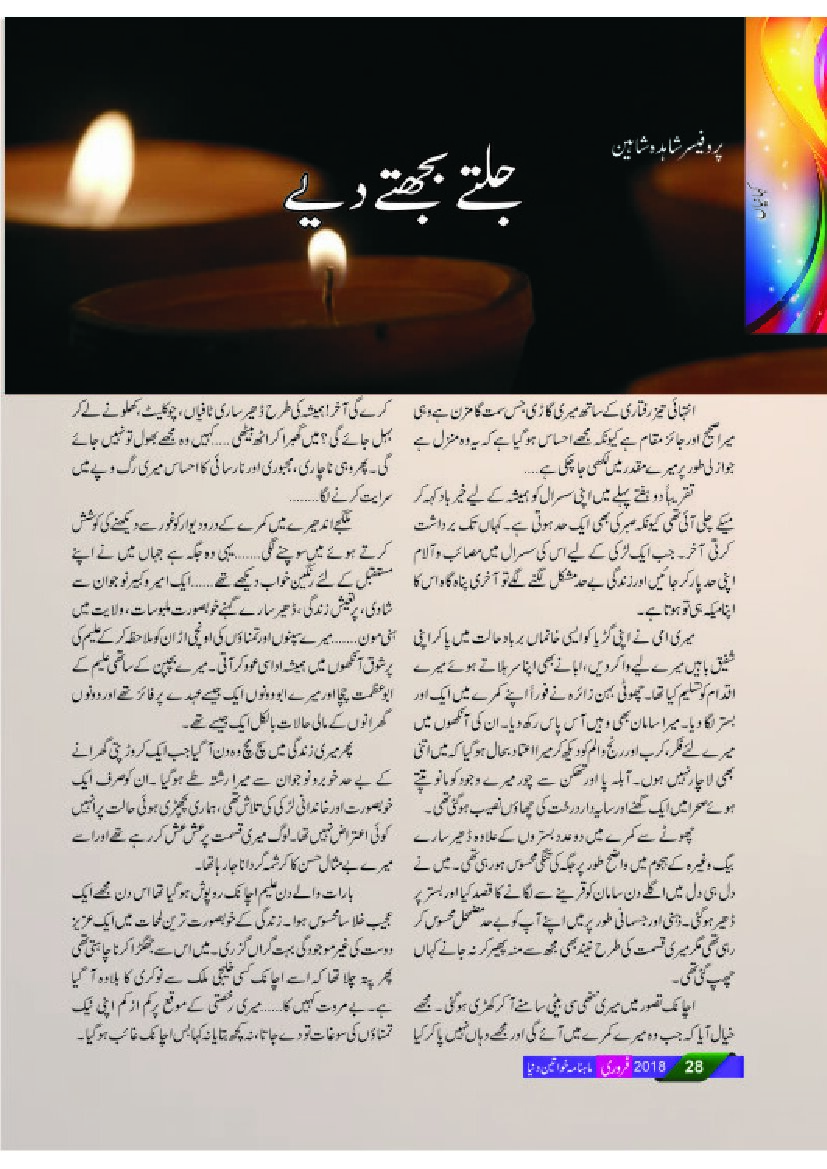 کہانیاں
پروفیسر شاہدہ شاہین
جلتے بجھتے دیے
انتہائی تیز رفتاری کے ساتھ میری گاڑی جس سمت گامزن ہے وہی
میرا صحیح اور جائز مقام ہے کیونکہ مجھے احساس ہو گیا ہے کہ یہ وہ منزل ہے
جو ازلی طور پر میرے مقدر میں لکھی جا چکی ہے....
تقریباً دو ہفتے پہلے میں اپنی سسرال کو ہمیشہ کے لیے خیر باد کہہ کر
میکے چلی آئی تھی کیونکہ صبر کی بھی ایک حد ہوتی ہے۔ کہاں تک برداشت
کرتی آخر۔ جب ایک لڑکی کے لیے اس کی سسرال میں مصائب و آلام
اپنی حد پار کر جائیں اور زندگی بے حد مشکل لگنے لگے تو آخری پناہ گاہ اس کا
اپنا میکہ ہی تو ہوتا ہے۔
میری امی نے اپنی گڑیا کو ایسی خانماں برباد حالت میں پا کر اپنی
شفیق باہیں میرے لیے وا کر دیں، ابا نے بھی اپنا سر ہلاتے ہوئے میرے
اقدام کو تسلیم کیا تھا۔ چھوٹی بہن زائرہ نے فوراً اپنے کمرے میں ایک اور
بستر لگا دیا۔ میرا سامان بھی وہیں آس پاس رکھ دیا۔ ان کی آنکھوں میں
میرے لئے فکر، کرب اور رنج و الم کو دیکھ کر میرا اعتماد بحال ہو گیا کہ میں اتنی
بھی لاچار نہیں ہوں۔ آبلہ پا اور تھکن سے چور میرے وجود کو مانو تپتے
ہوئے صحرا میں ایک گھنے اور سایہ دار درخت کی چھاؤں نصیب ہو گئی تھی۔
چھوٹے سے کمرے میں دو عدد بستروں کے علاوہ ڈھیر سارے
بیگ وغیرہ کے ہجوم میں واضح طور پر جگہ کی تنگی محسوس ہو رہی تھی۔ میں نے
دل ہی دل میں اگلے دن سامان کو قرینے سے لگانے کا قصد کیا اور بستر پر
ڈھیر ہو گئی۔ ذہنی اور جسمانی طور پر میں اپنے آپ کو بے حد مضمحل محسوس کر
رہی تھی مگر میری قسمت کی طرح نیند بھی مجھ سے منہ پھیر کر نہ جانے کہاں
چھپ گئی تھی۔
اچانک تصور میں میری ننھی سی بیٹی سامنے آ کر کھڑی ہو گئی۔ مجھے
خیال آیا کہ جب وہ میرے کمرے میں آئے گی اور مجھے وہاں نہیں پا کر کیا
کرے گی آخر! ہمیشہ کی طرح ڈھیر ساری ٹافیاں، چوکلیٹ، کھلونے لے کر
بہل جائے گی؟ میں گھبرا کر اٹھ بیٹھی.....کہیں وہ مجھے بھول تو نہیں جائے
گی۔ پھر وہی ناچاری، مجبوری اور نارسائی کا احساس میری رگ و پے میں
سرایت کرنے لگا.........
ملگجے اندھیرے میں کمرے کے در و دیوار کو غور سے دیکھنے کی کوشش
کرتے ہوئے میں سوچنے لگی.......یہی وہ جگہ ہے جہاں میں نے اپنے
مستقبل کے لئے رنگین خواب دیکھے تھے......ایک امیر و کبیر نوجوان سے
شادی، پر تعیش زندگی، ڈھیر سارے گہنے خوبصورت ملبوسات، ولایت میں
ہنی مون.......میرے سپنوں اور تمناؤں کی اونچی اڑان کو ملاحظہ کر کے علیم کی
پر شوق آنکھوں میں ہمیشہ اداسی عود کر آتی۔ میرے بچپن کے ساتھی علیم کے
ابو عظمت چچا اور میرے ابو دونوں ایک جیسے عہدے پر فائز تھے اور دونوں
گھرانوں کے مالی حالات بالکل ایک جیسے تھے۔
پھر میری زندگی میں سچ مچ وہ دن آ گیا جب ایک کروڑ پتی گھرانے
کے بے حد خوبرو نوجوان سے میرا رشتہ طے ہو گیا۔ ان کو صرف ایک
خوبصورت اور خاندانی لڑکی کی تلاش تھی، ہماری پچھڑی ہوئی حالت پر انہیں
کوئی اعتراض نہیں تھا۔ لوگ میری قسمت پر عش عش کر رہے تھے اور اسے
میرے بے مثال حسن کا کرشمہ گردانا جا رہا تھا۔
بارات والے دن علیم اچانک روپوش ہو گیا تھا اس دن مجھے ایک
عجیب خلا سا محسوس ہوا۔ زندگی کے خوبصورت ترین لمحات میں ایک عزیز
دوست کی غیر موجودگی بہت گراں گزری۔ میں اس سے جھگڑا کرنا چاہتی تھی
پھر پتہ چلا تھا کہ اسے اچانک کسی خلیجی ملک سے نوکری کا بلاوہ آ گیا
ہے۔ بے مروت کہیں کا.....میری رخصتی کے موقع پر کم از کم اپنی نیک
تمناؤں کی سوغات تو دے جاتا، نہ کچھ بتایا نہ کہا بس اچانک غائب ہو گیا۔
ماہنامہ خواتین دنیا فروری 2018 28